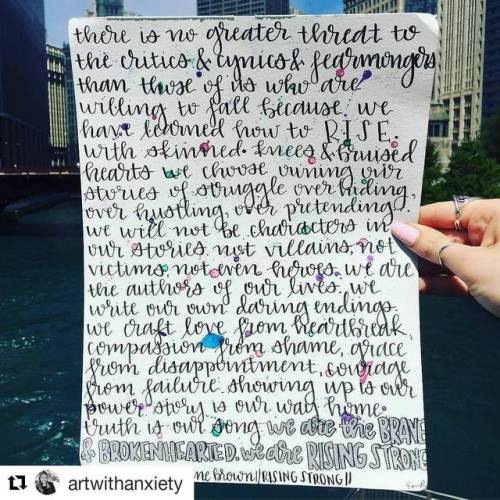 there is no greater threat to
the critics & cynics & fearmongers
than those of us who are
willing to fall because we
have learned how to RISE.
with skinned knees & bruised
hearts we choose owning our
stories of struggle over hiding,
over hustling, over pretending.
we will not be characters in
our stories. not villains, not
victims, not even heroes. we are
the authors of our lives. we
write our own daring endings.
we craft love from heartbreak,
compassion from shame, grace
from disappointment, courage
from failure. showing up is our
power. story is our way home.
truth is our song. we are the BRAVE
& BROKENHEARTED. we are RISING STRONG
ne brown//RISING STRONG//
artwithanxiety